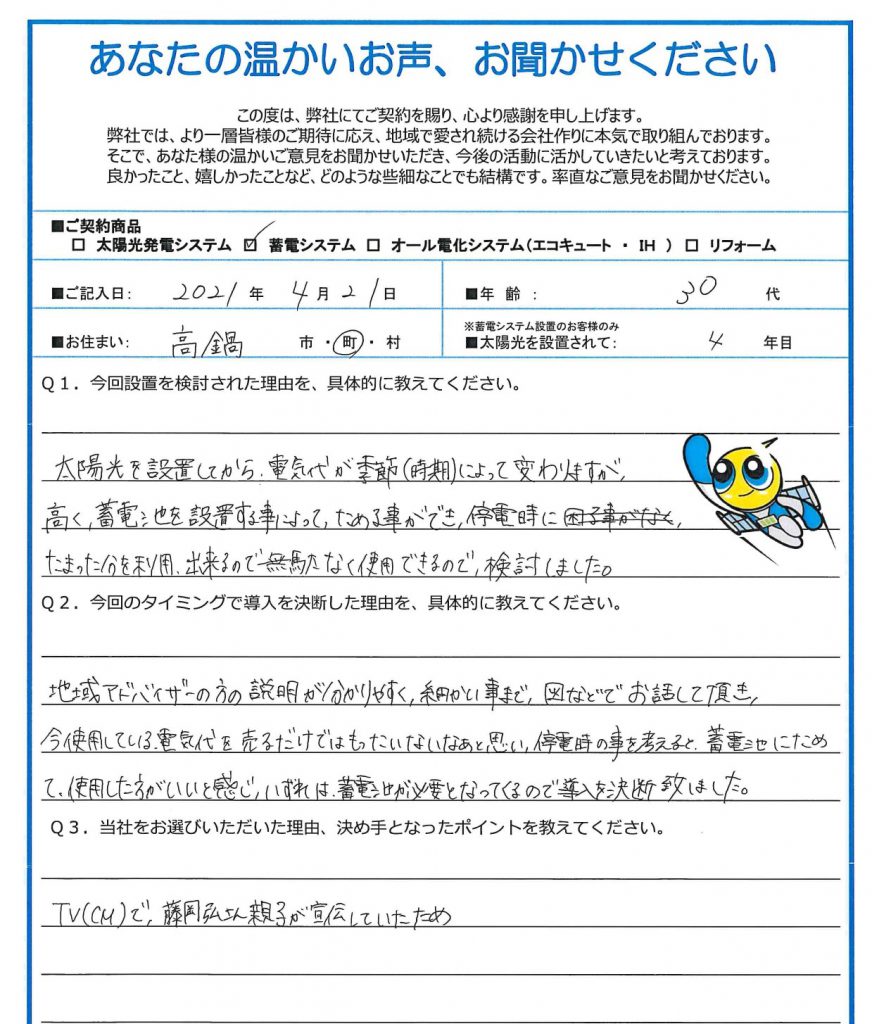 あなたの温かいお声、お聞かせください
この度は、弊社にてご契約を賜り、心より感謝を申し上げます。
弊社では、より一層皆様のご期待に応え、地域で愛され続ける会社作りに本気で取り組んでおります。
そこで、あなた様の温かいご意見をお聞かせいただき、今後の活動に活かしていきたいと考えております。
良かったこと、嬉しかったことなど、どのような些細なことでも結構です。率直なご意見をお聞かせください。
■ご契約商品
□ 太陽光発電システム ☑ 蓄電システム □ オール電化システム(エコキュート ・ IH ) □ リフォーム
■ご記入日: 2021 年 4 月 21 日 ■年 齢 : 30 代
※蓄電システム設置のお客様のみ
■お住まい: 高鍋 市 ・ 町 ・ 村 ■太陽光を設置されて: 4 年目
Q1. 今回設置を検討された理由を、具体的に教えてください。
太陽光を設置してから、電気代が季節(時期)によって変わりますが、
高く、蓄電池を設置する事によって、ためる事ができ、停電時に困る事がなく、
たまった分を利用、出来るので無駄なく使用できるので、検討しました。
Q2. 今回のタイミングで導入を決断した理由を、具体的に教えてください。
地域アドバイザーの方の説明が分かりやすく、細かい事まで、図などでお話して頂き、
今使用している電気代を売るだけではもったいないなあと思い、停電時の事を考えると、蓄電池にため
て、使用した方がいいと感じ、いずれは、蓄電池が必要となってくるので導入を決断致しました。
Q3. 当社をお選びいただいた理由、決め手となったポイントを教えてください。
TV(CM)で、藤岡弘さん親子が宣伝していたため